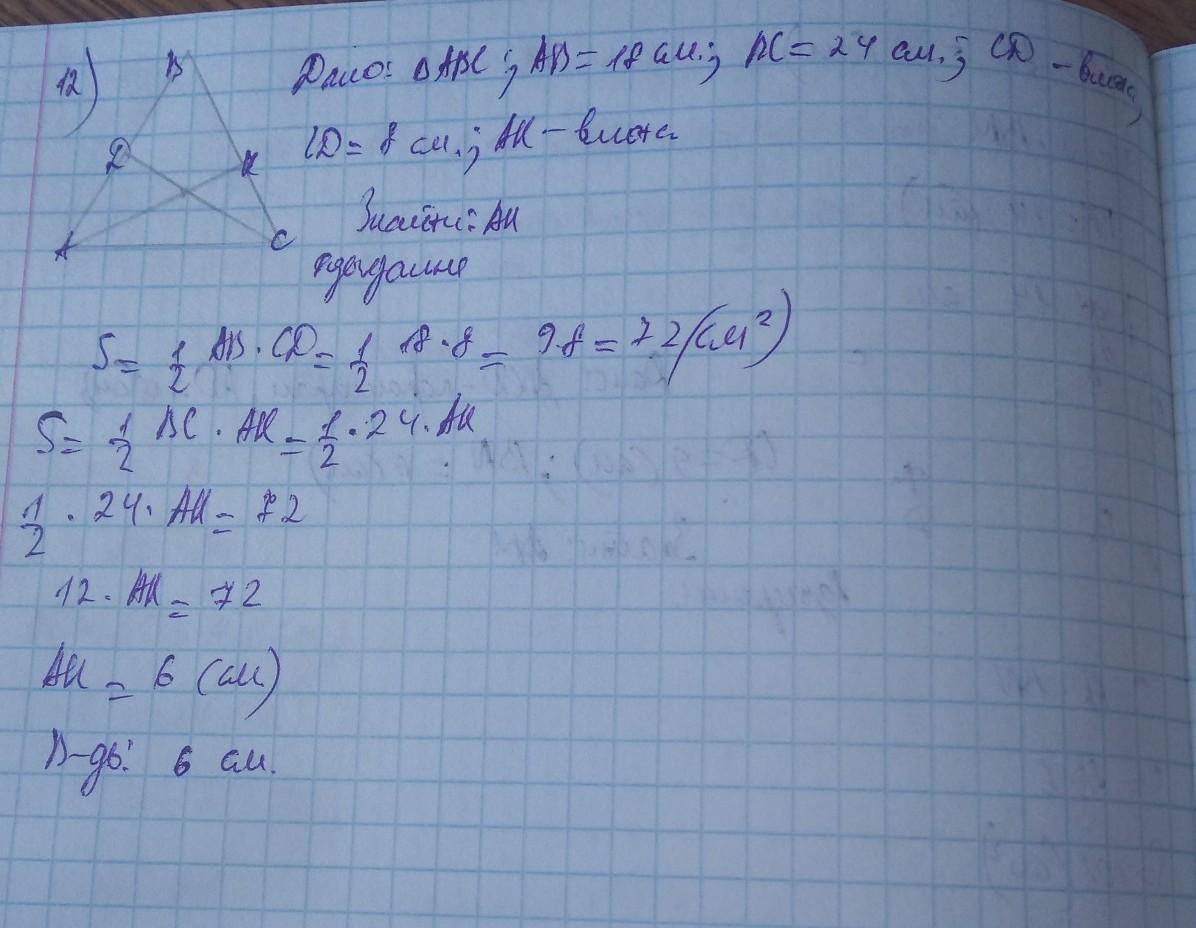 12)
B
D
K
A
C
Дано: ΔABC; AB = 18 см.; BC = 24 см.; CD – висота,
CD = 8 см.; AK – висота
Знайти: AK
S = 1/2 AB · CD = 1/2 18 · 8 = 9·8 = 72 (см²)
S = 1/2 BC · AK = 1/2 · 24 · AK
1/2 · 24 · AK = 72
12 · AK = 72
AK = 6 (см)
В-дь: 6 см.